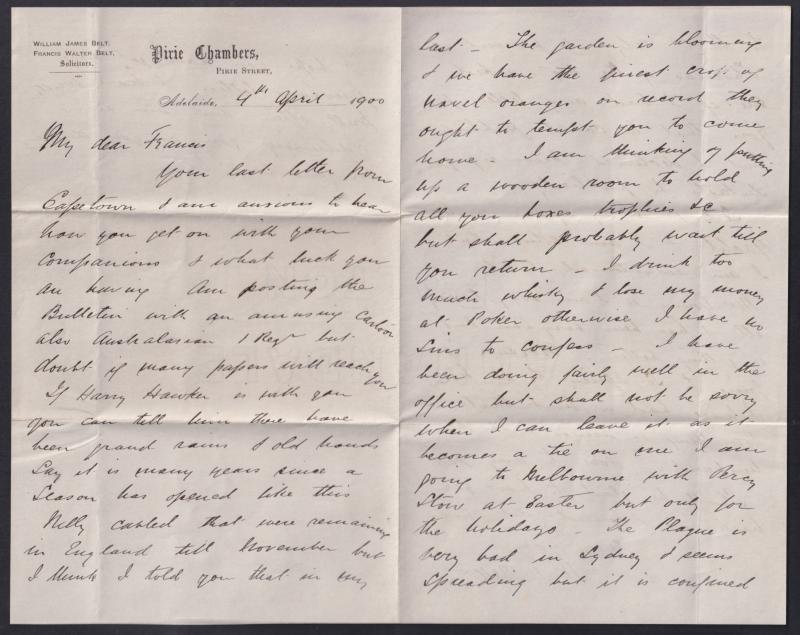 WILLIAM JAMES BELT.
FRANCIS WALTER BELT.
Solicitors.
Pirie Chambers,
PIRIE STREET,
Adelaide, 4th April 1900
My dear Francis
Your last letter from
Capetown I am anxious to hear
how you get on with your
Companions & what luck you
are having Am posting the
Bulletin with an amusing Cartoon
also Australasian 1 Regr but
doubt if many papers will reach you
If Harry Hawker is with you
you can tell him there have
been grand rains & old hands
say it is many years since a
Season has opened like this
Nelly cabled that were remaining
in England till November but
I think I told you that in my
last - The garden is blooming
& we have the finest crop of
navel oranges on record they
ought to tempt you to come
home - I am thinking of putting
up a wooden room to hold
all you boxes trophies &c
but shall probably wait till
you return - I drink too
much whisky & lose my money
at Poker otherwise I have no
Sins to confess - I have
been doing fairly well in the
office but shall not be sorry
when I can leave it as it
becomes a tie on one I am
going to Melbourne with Percy
Stow at Easter but only for
the holidays - The Plague is
very bad in Sydney & seems
spreading but it is confined